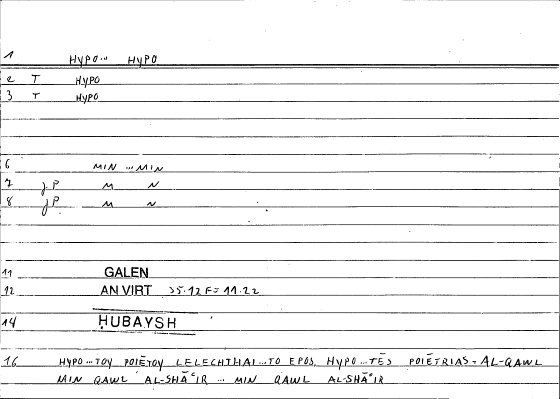 1 HYPO... HYPO
2 T HYPO
3 T HYPO
6 MIN ... MIN
7 jP M N
8 jP M N
11 GALEN
12 AN VIRT 35.12 F = 11.22
14 ḤUBAYSH
16 HYPO...TOY POIĒTOY LELECHTHAI...TO EPOS, HYPO...TĒS POIĒTRIAS = AL-QAWL
MIN QAWL AL-SHĀʿIR ... MIN QAWL AL-SHĀʿIR